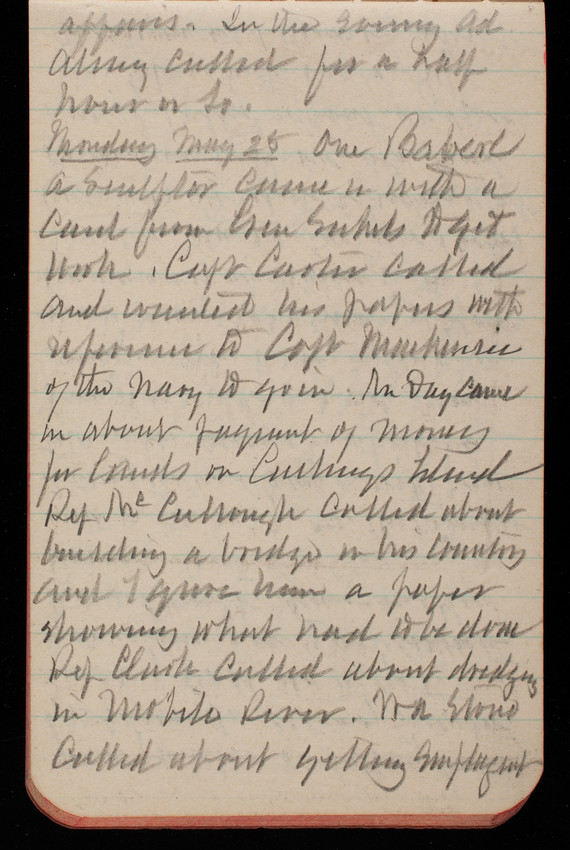 affairs. In the evening Ad
Almy called for a half
hour or so.
Monday May 25 One Baberl
a sculptor came in with a
card from Gen Sickels to get
work. Capt Carter called
and wanted his papers with
reference to Capt Mackenzie
of the Navy to go in. Mr Day came
in about payment of money
for lands on Cushings Island
Rep Mc Cullough called about
building a bridge in his country
and I gave him a paper
showing what had to be done
Rep Clark called about dredging
in Mobile River. Stone
called about getting employment